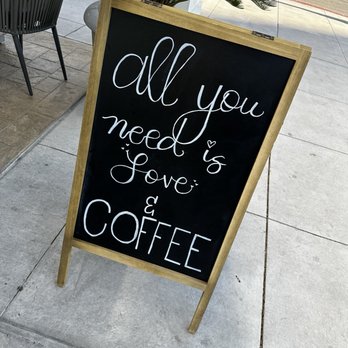 all you
need is
Love
&
COFFEE